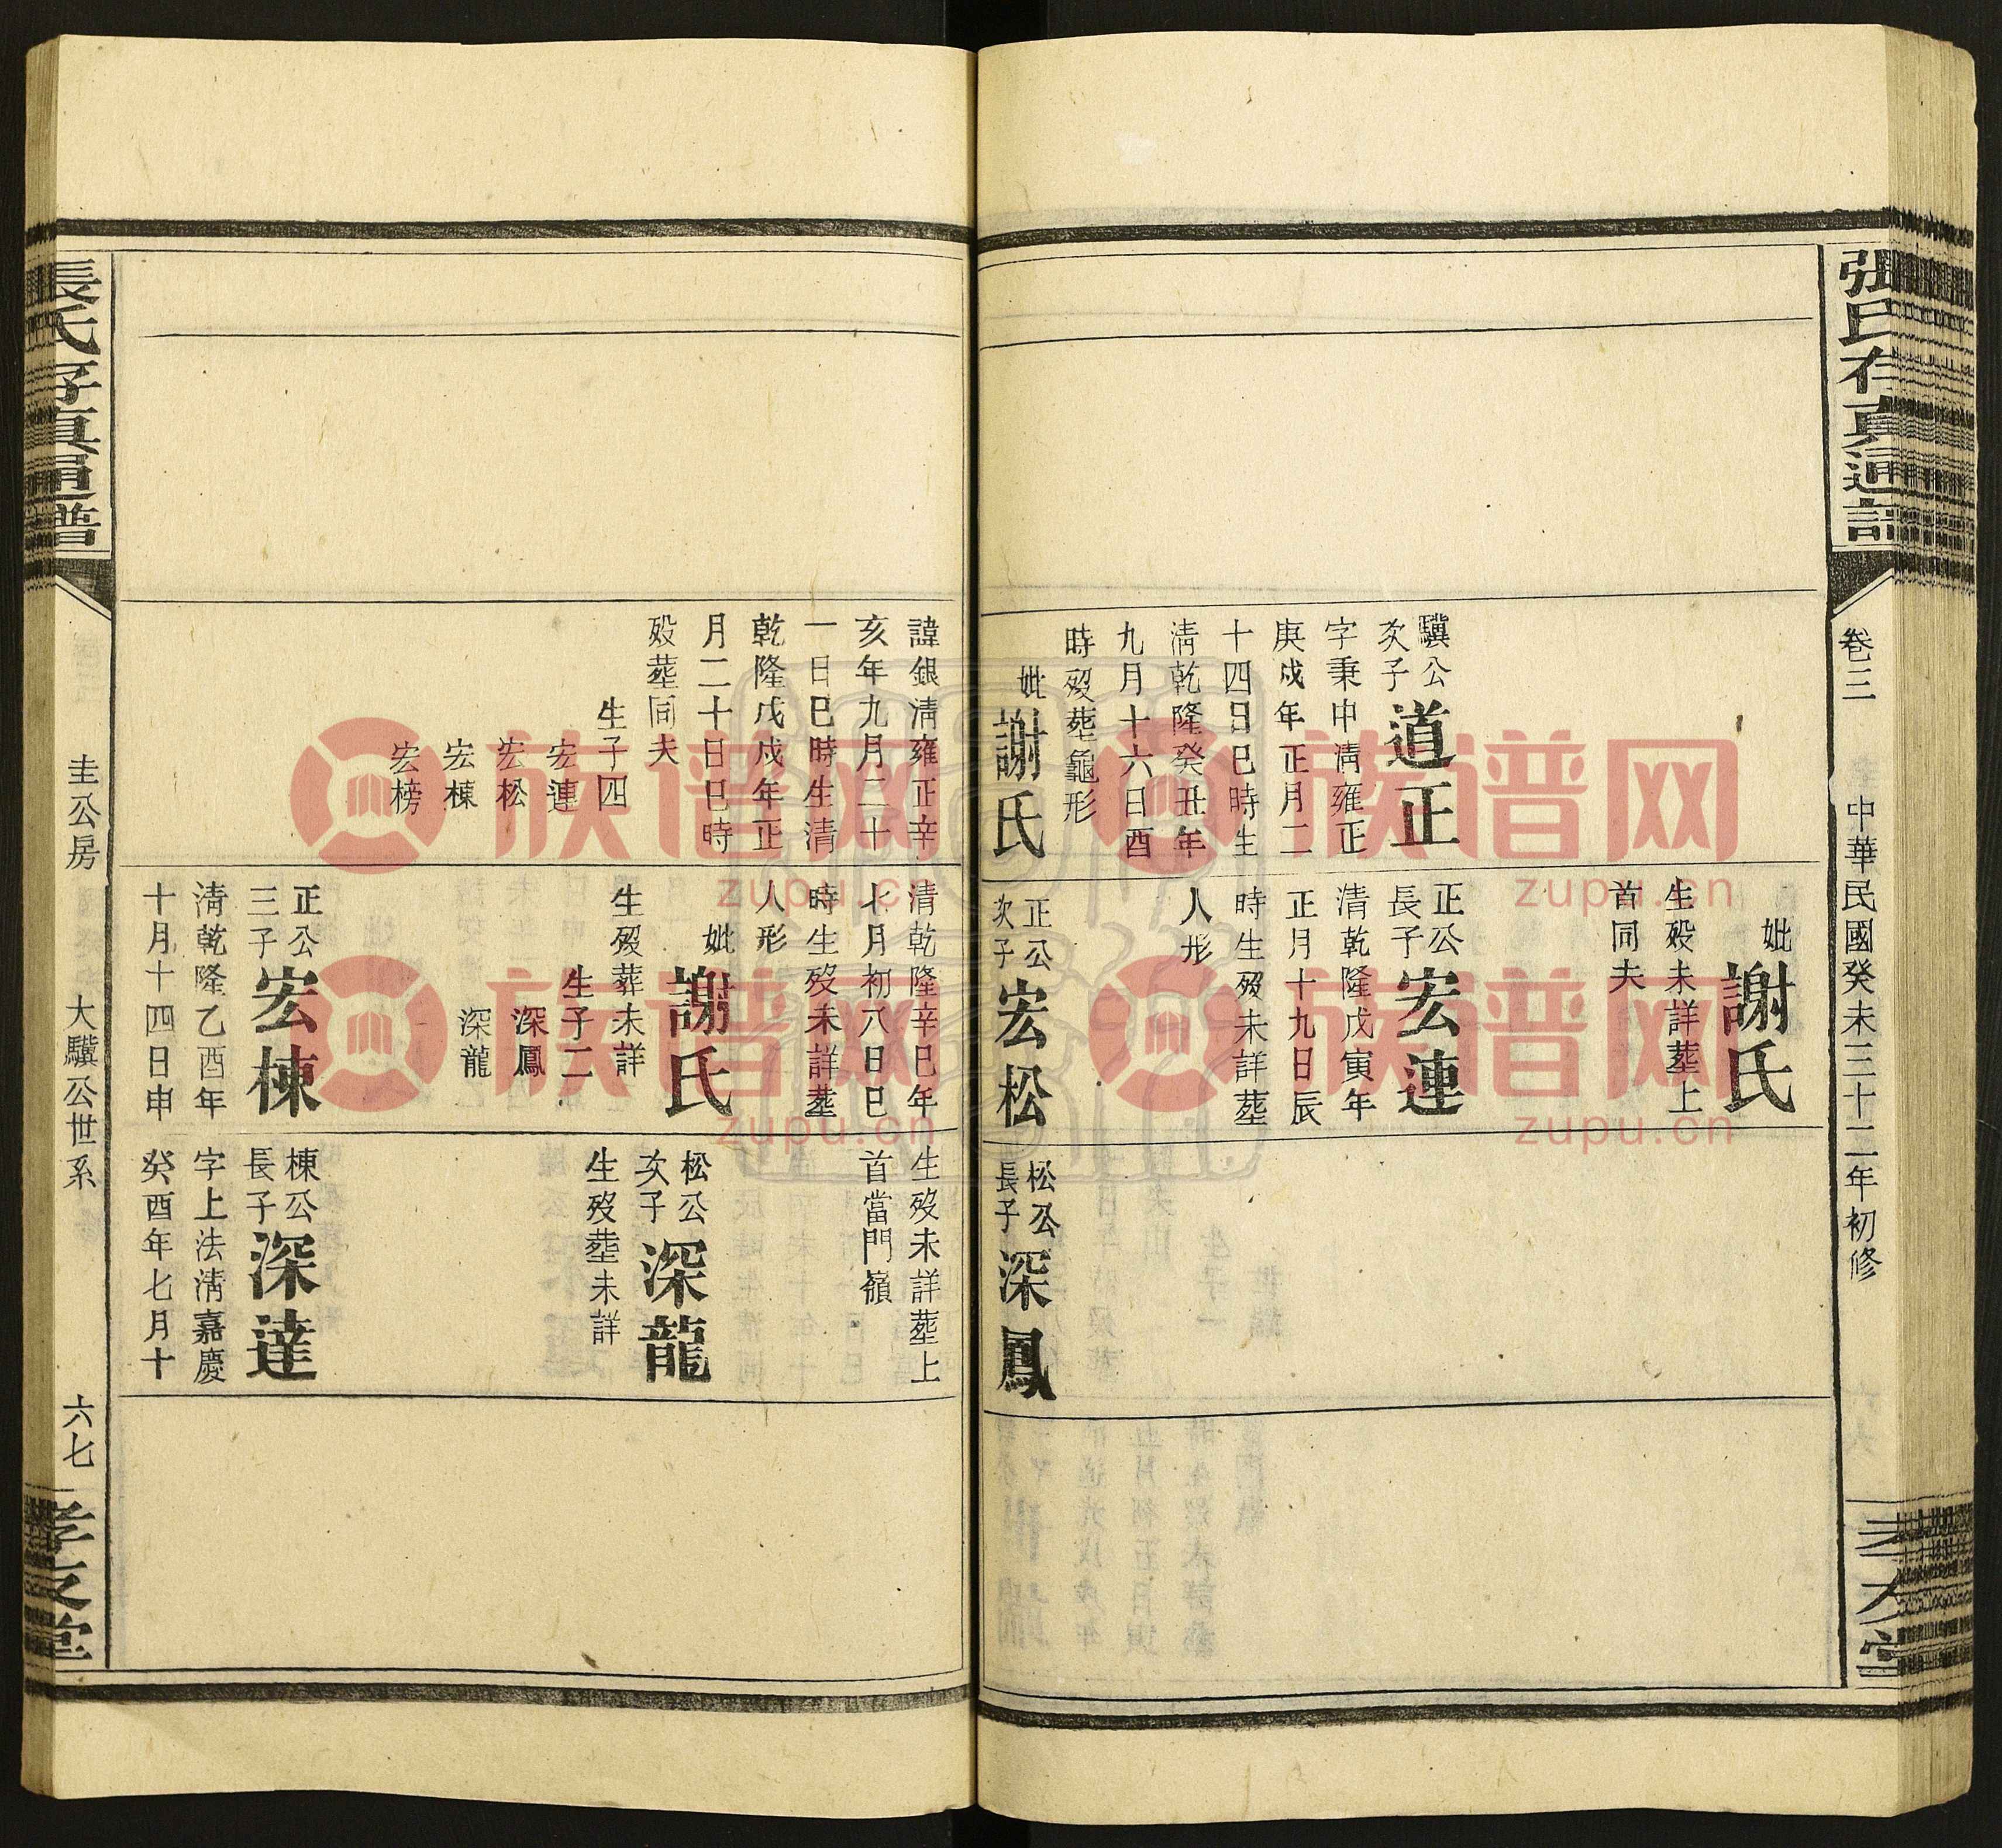 張氏存真通譜
卷三
中華民國癸未三十二年初修
孝友堂
驥公
次子
道正
字秉中淸雍正
庚戍年正月二
十四日巳時生
淸乾隆癸丑年
九月十六日酉
時歿塟龜形
妣
謝氏
諱銀淸雍正辛
亥年九月二十
一日巳時生淸
乾隆戊戍年正
月二十日巳時
歿塟同夫
生子四
宏連
宏松
宏棟
宏榜
妣
謝氏
生歿未詳塟上
首同夫
正公
長子
宏連
清乾隆戊寅年
正月十九日辰
時生歿未詳塟
人形
正公
次子
宏松
清乾隆辛巳年
七月初八日巳
時生歿未詳塟
人形
妣
謝氏
生歿葬未詳
生子二
深鳳
深龍
正公
三子
宏棟
淸乾隆乙酉年
十月十四日申
松公
長子
深鳳
生歿未詳塟上
首當門嶺
松公
次子
深龍
生歿塟未詳
棟公
長子
深達
字上法淸嘉慶
癸酉年七月十
張氏存真通譜
圭公房
大驥公世系
六七
孝友堂
族谱网
zupu.cn
族谱网
zupu.cn
族谱网
zupu.cn
族谱网
zupu.cn